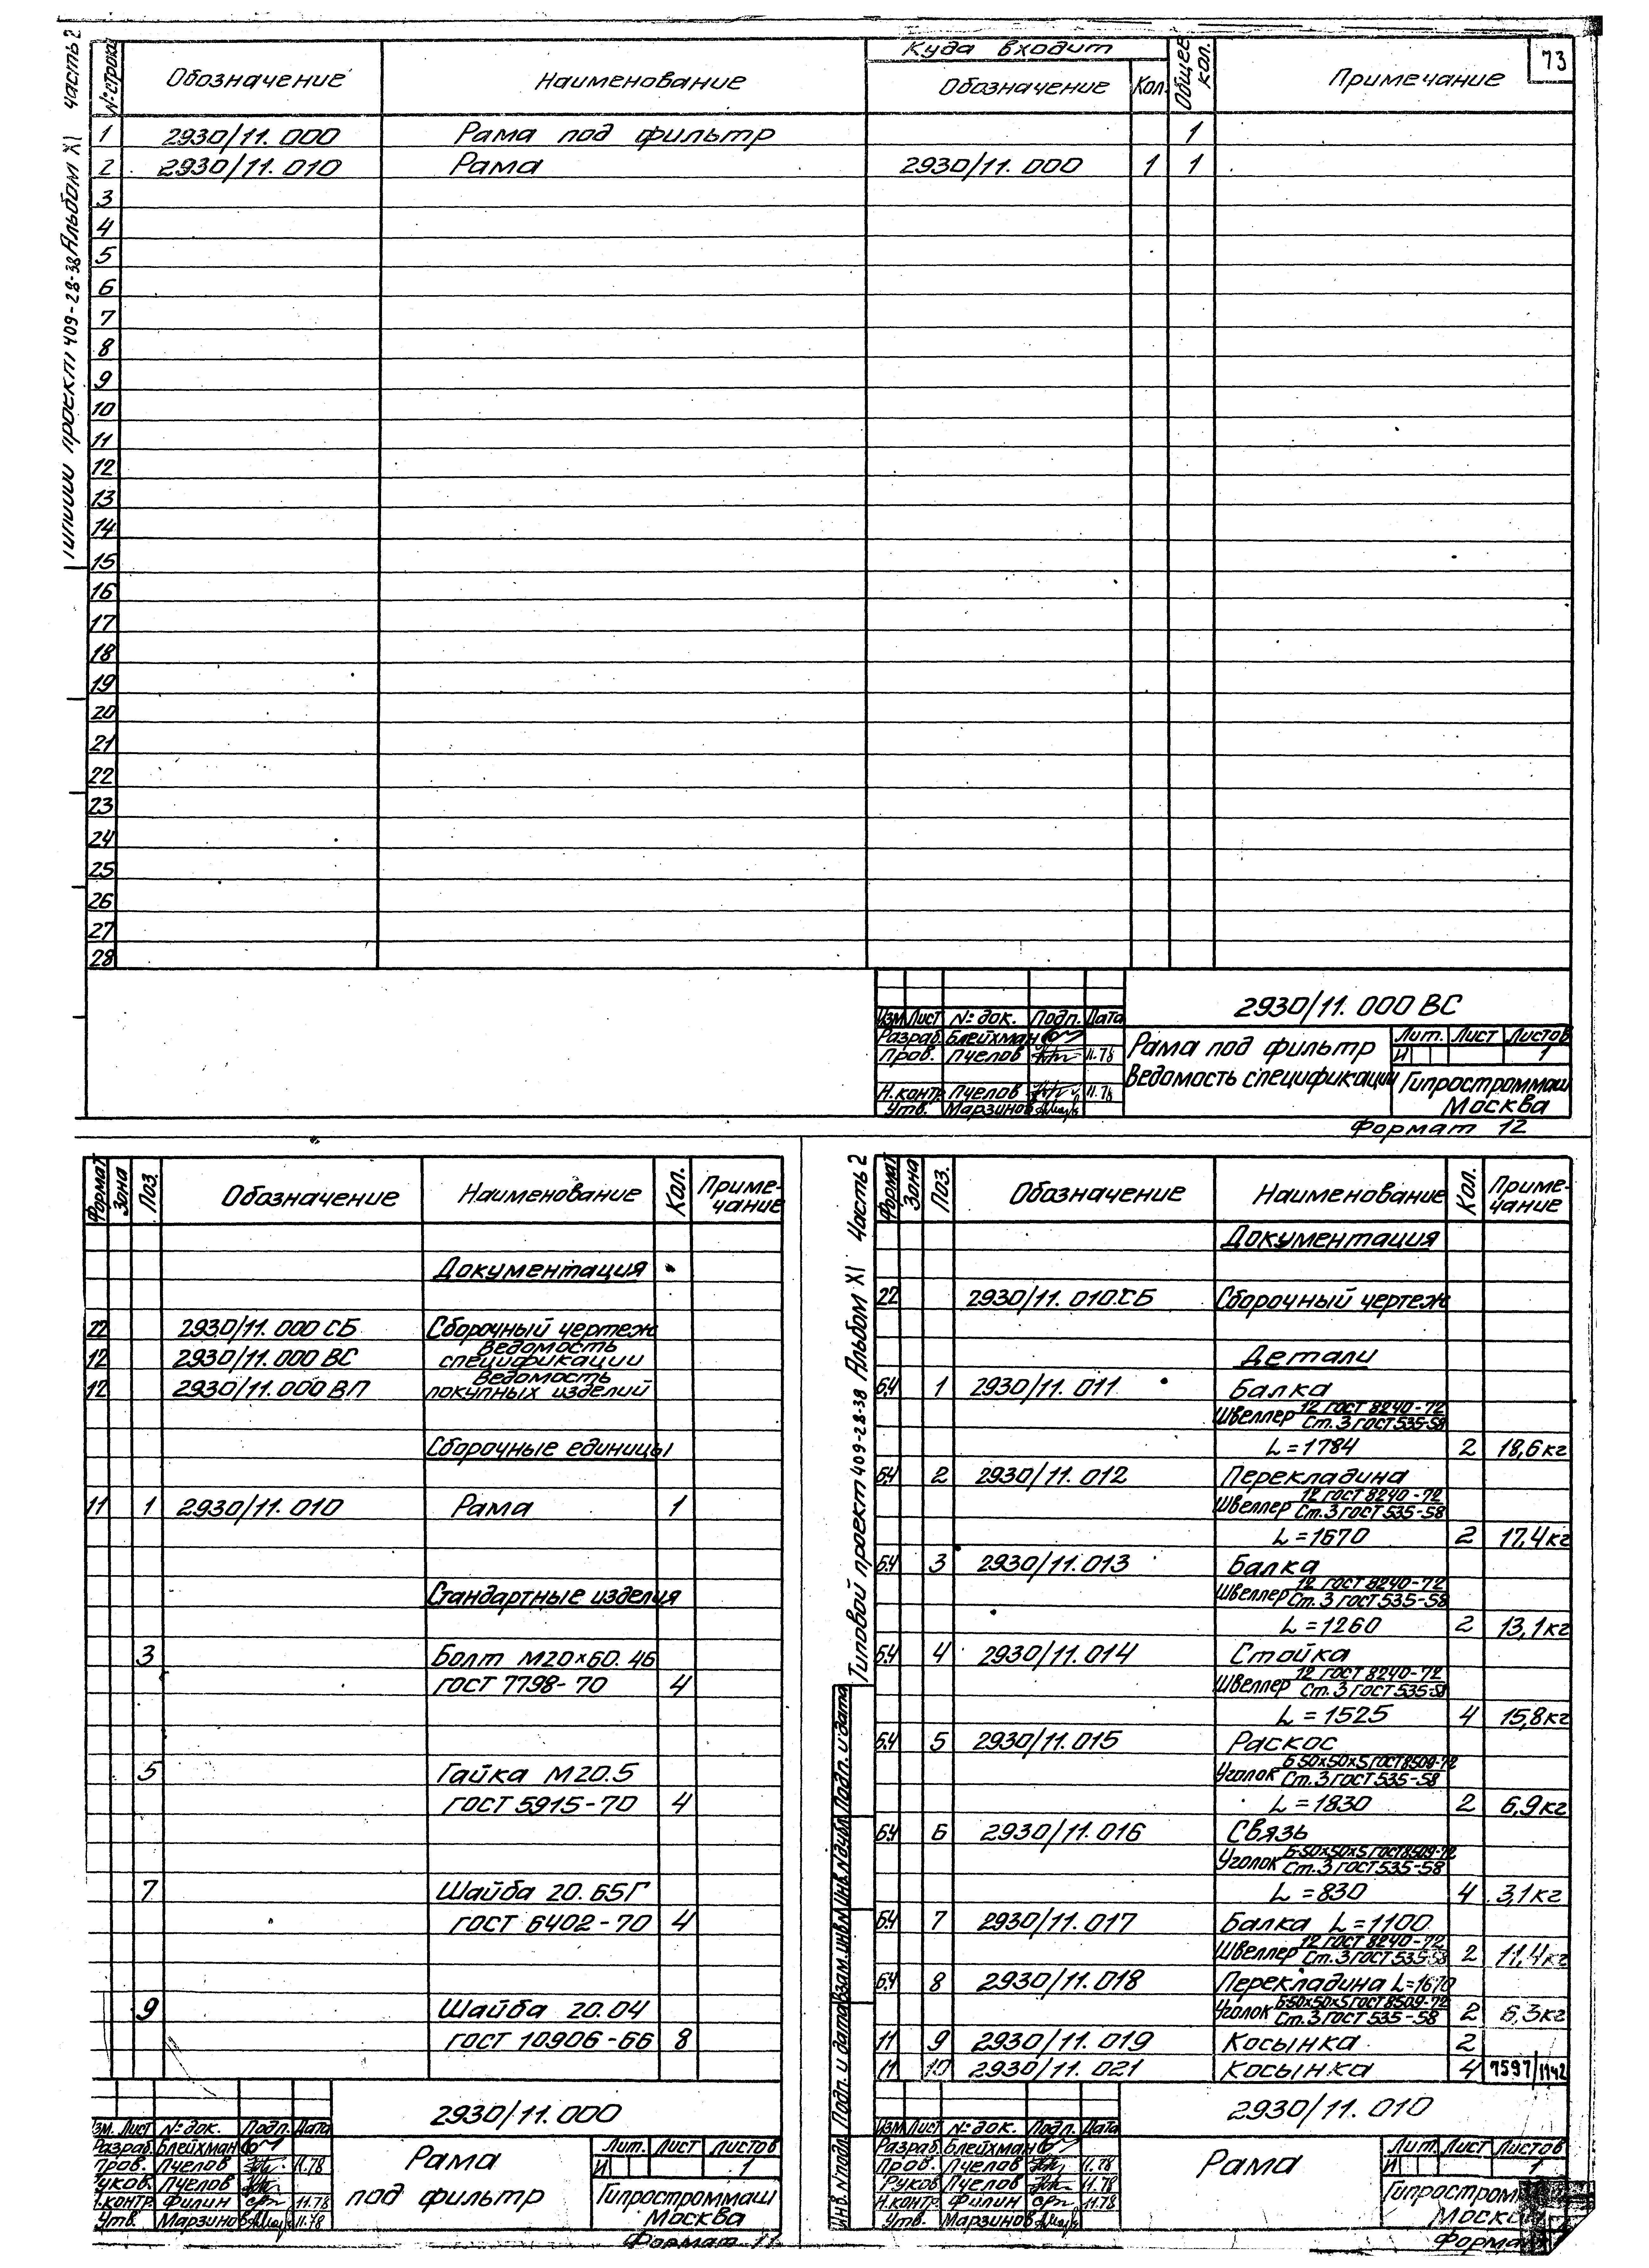 73
Типовой проект 409-28-38 Альбом XI часть 2
№ строки Обозначение Наименование Куда входит Общее кол. Примечание
Обозначение Кол.
1 2930/11.000 Рама под фильтр 1
2 2930/11.010 Рама 2930/11.000 1 1
3
4
5
6
7
8
9
10
11
12
13
14
15
16
17
18
19
20
21
22
23
24
25
26
27
28
2930/11.000 ВС
Изм Лист № док. Подп. Дата
Разраб. Блейхман
Пров. Пчелов 11.78
Н.контр. Пчелов 11.78
Утв. Марзинов
Рама под фильтр
Ведомость спецификации
Лит. Лист Листов
И 1
Гипростроммаш
Москва
Формат 12
Формат Зона Поз. Обозначение Наименование Кол. Приме-
чание
Документация
22 2930/11.000 СБ Сборочный чертеж
12 2930/11.000 ВС Ведомость
спецификации
12 2930/11.000 ВП Ведомость
покупных изделий
Сборочные единицы
11 1 2930/11.010 Рама 1
Стандартные изделия
3 Болт М20×60.46
ГОСТ 7798-70 4
5 Гайка М20.5
ГОСТ 5915-70 4
7 Шайба 20.65Г
ГОСТ 6402-70 4
9 Шайба 20.04
ГОСТ 10906-66 8
2930/11.000
Изм. Лист № док. Подп. Дата
Разраб. Блейхман
Пров. Пчелов 11.78
Руков. Пчелов
Н.контр. Филин 11.78
Утв. Марзинов 11.78
Рама
под фильтр
Лит. Лист Листов
И 1
Гипростроммаш
Москва
Формат 11
Типовой проект 409-28-38 Альбом XI Часть 2
Инв.№подл. Подп. и дата Взам.инв.№ Инв.№дубл. Подп. и дата
Формат Зона Поз. Обозначение Наименование Кол. Приме-
чание
Документация
22 2930/11.010.СБ Сборочный чертеж
Детали
БЧ 1 2930/11.011 Балка
Швеллер 12 ГОСТ 8240-72
Ст.3 ГОСТ 535-58
L=1784 2 18,6кг
БЧ 2 2930/11.012 Перекладина
Швеллер 12 ГОСТ 8240-72
Ст.3 ГОСТ 535-58
L=1670 2 17,4кг
БЧ 3 2930/11.013 Балка
Швеллер 12 ГОСТ 8240-72
Ст.3 ГОСТ 535-58
L=1260 2 13,1кг
БЧ 4 2930/11.014 Стойка
Швеллер 12 ГОСТ 8240-72
Ст.3 ГОСТ 535-58
L=1525 4 15,8кг
БЧ 5 2930/11.015 Раскос
Уголок Б-50×50×5 ГОСТ 8509-72
Ст.3 ГОСТ 535-58
L=1830 2 6,9кг
БЧ 6 2930/11.016 Связь
Уголок Б-50×50×5 ГОСТ 8509-72
Ст.3 ГОСТ 535-58
L=830 4 3,1кг
БЧ 7 2930/11.017 Балка L=1100
Швеллер 12 ГОСТ 8240-72
Ст.3 ГОСТ 535-58 2 11,4кг
БЧ 8 2930/11.018 Перекладина L=1670
Уголок Б-50×50×5 ГОСТ 8509-72
Ст.3 ГОСТ 535-58 2 6,3кг
11 9 2930/11.019 Косынка 2
11 10 2930/11.021 Косынка 4
7597/1142
2930/11.010
Изм. Лист № док. Подп. Дата
Разраб. Блейхман
Пров. Пчелов 11.78
Руков Пчелов 11.78
Н.контр. Филин 11.78
Утв. Марзинов
Рама
Лит. Лист Листов
И 1
Гипростром
Москва
Формат